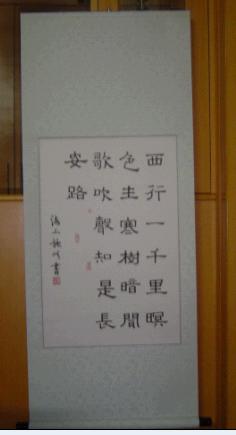 西行一千里暝
色生寒樹暗聞
歌吹聲知是長
安路
書